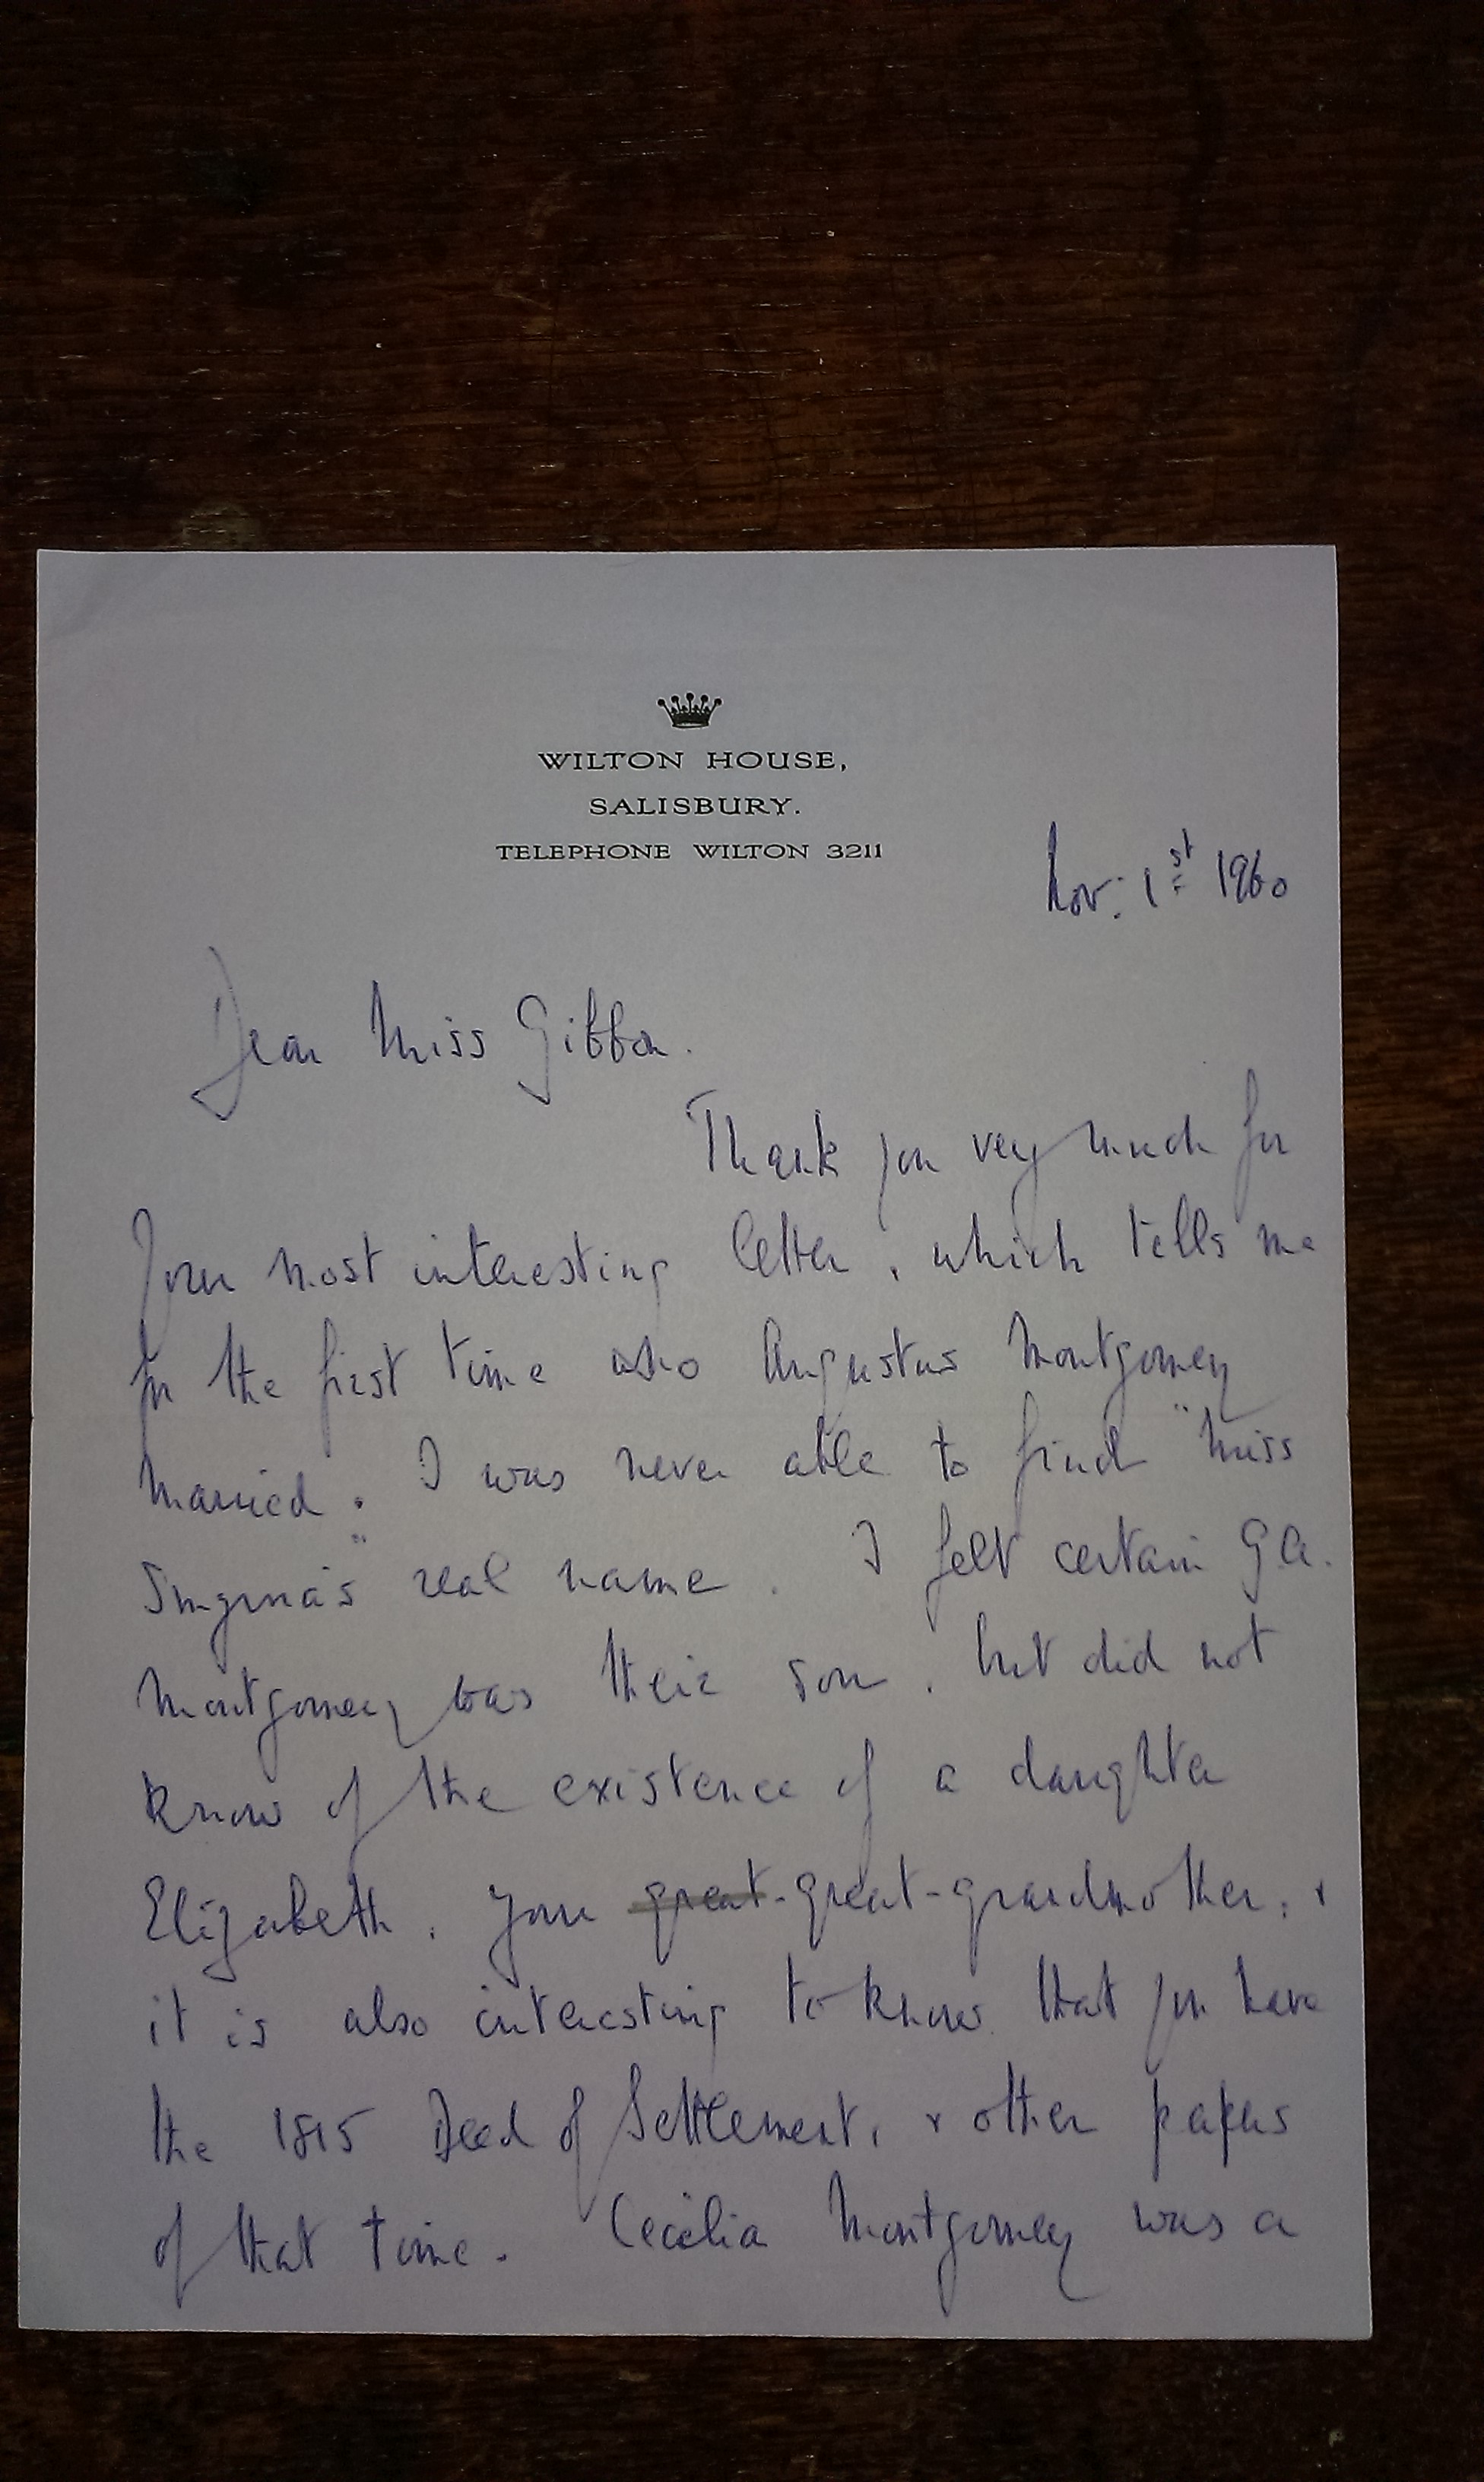 WILTON HOUSE,
SALISBURY.
TELEPHONE WILTON 3211
Nov: 1st 1960
Dear Miss Gibbon.
Thank you very much for
your most interesting letter, which tells me
for the first time who Augustus Montgomery
married. I was never able to find "Miss
Smyrna's" real name. I felt certain G.A.
Montgomery was their son, but did not
know of the existence of a daughter
Elizabeth, your great-great-grandmother, &
it is also interesting to know that you have
the 1815 Deed of Settlement, & other papers
of that time. Cecilia Montgomery was a